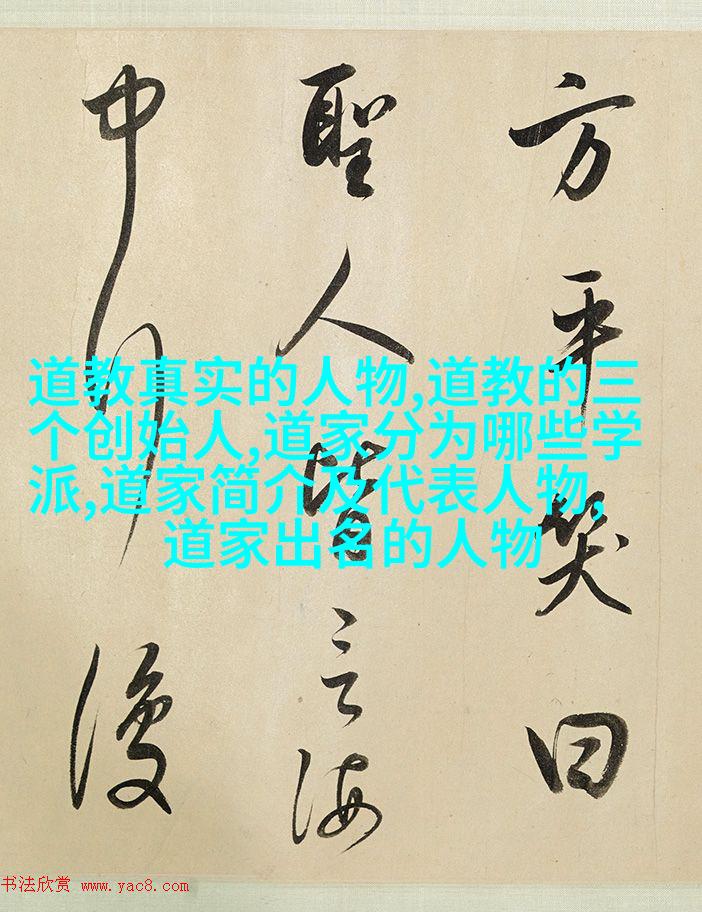 方平笑曰
聖人皆言海
中行復
道教真实的人物,道教的三
个创始人,道家分为哪些学
派,道家简介及代表人物,
道家出名的人物
书法欣赏 www.yac8.com